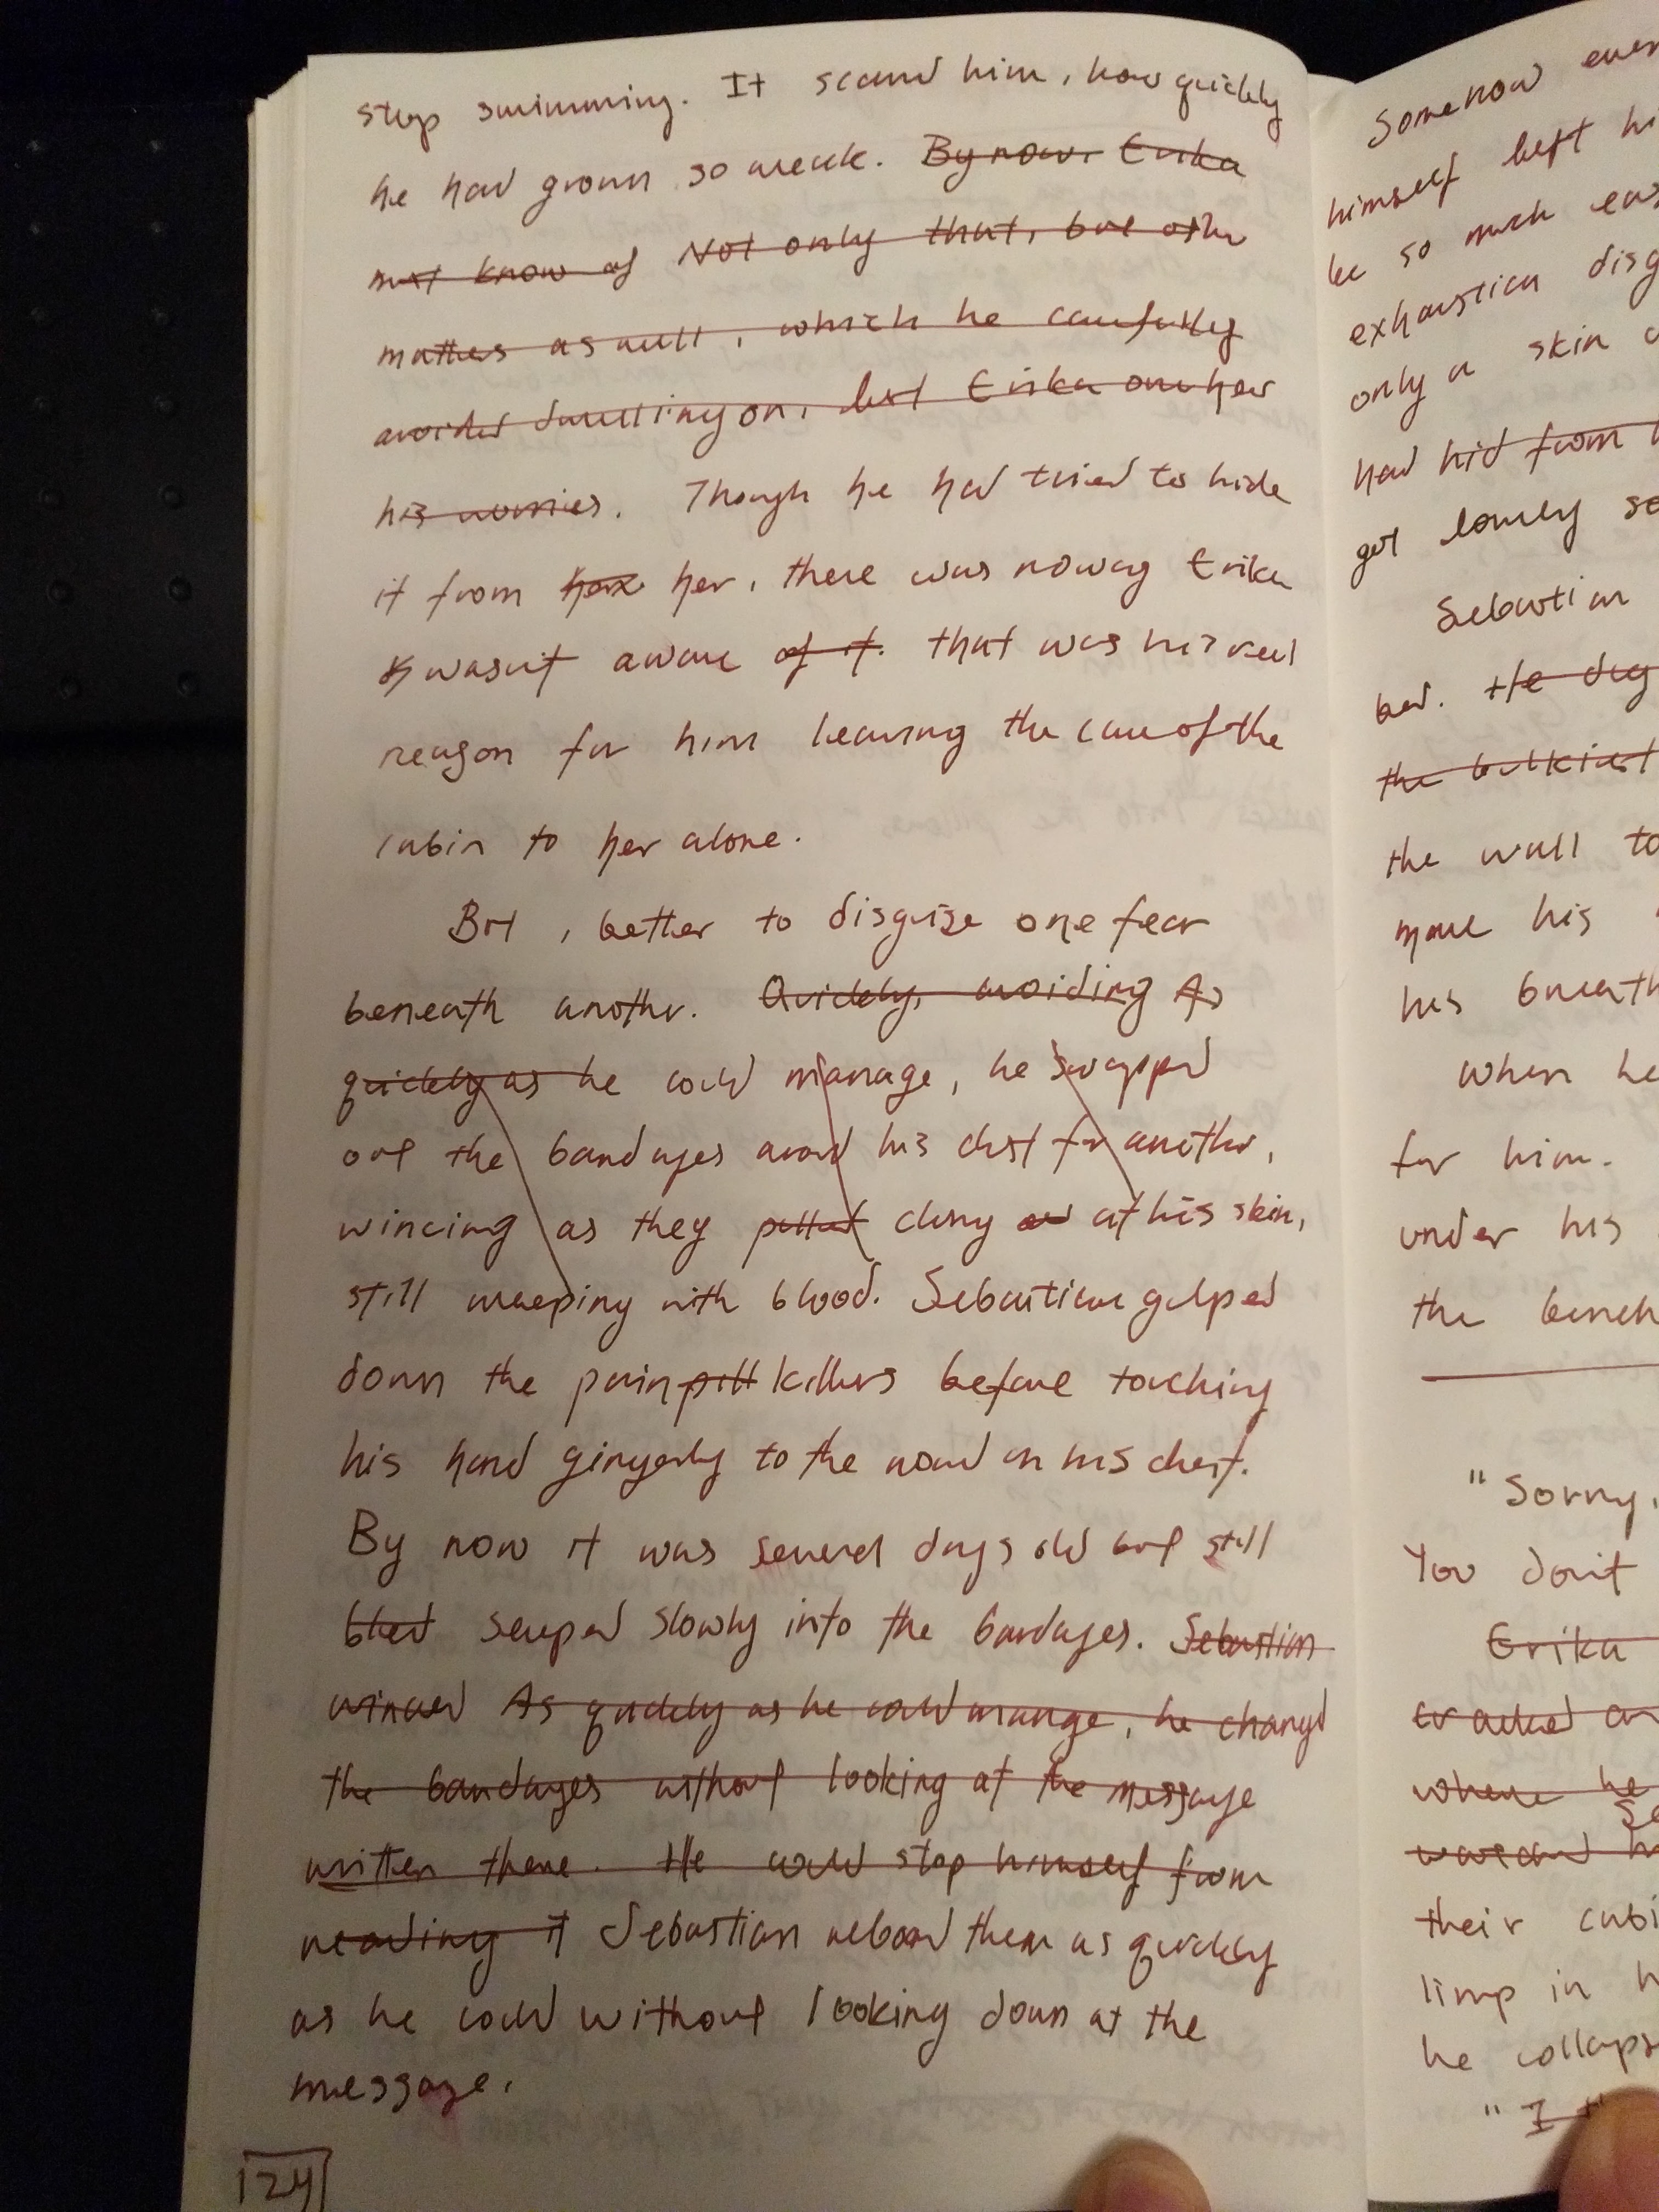 stop swimming. It scared him, how quickly
he had grown so weak. By now. Erika
must know of Not only that, but other
matters as well, which he carefully
avoided dwelling on, lest Erika overhear
his worries. Though he had tried to hide
it from her, there was noway Erika
wasn't aware of it. that was his real
reason for him leaving the care of the
cabin to her alone.
But, better to disguise one fear
beneath another. Quickly, avoiding As
quickly as he could manage, he swapped
out the bandages around his chest for another,
wincing as they pulled clung at his skin,
still weeping with blood. Sebastian gulped
down the pain pill killers before touching
his hand gingerly to the wound on his chest.
By now it was several days old but still
bled seeped slowly into the bandages. Sebastian
winced As quickly as he could manage, he changed
the bandages without looking at the message
written there. He could stop himself from
reading it Sebastian rebound them as quickly
as he could without looking down at the
message.
124
Somehow
himself left
be so much
exhaustion
only a skin
had hid from
got lonely
Sebastian
bed. He
the bulkiest
the wall to
move his
his
when he
for him.
under his
the bench
"Sorry,
You don't
Erika
where he
their
limp in
he
"I